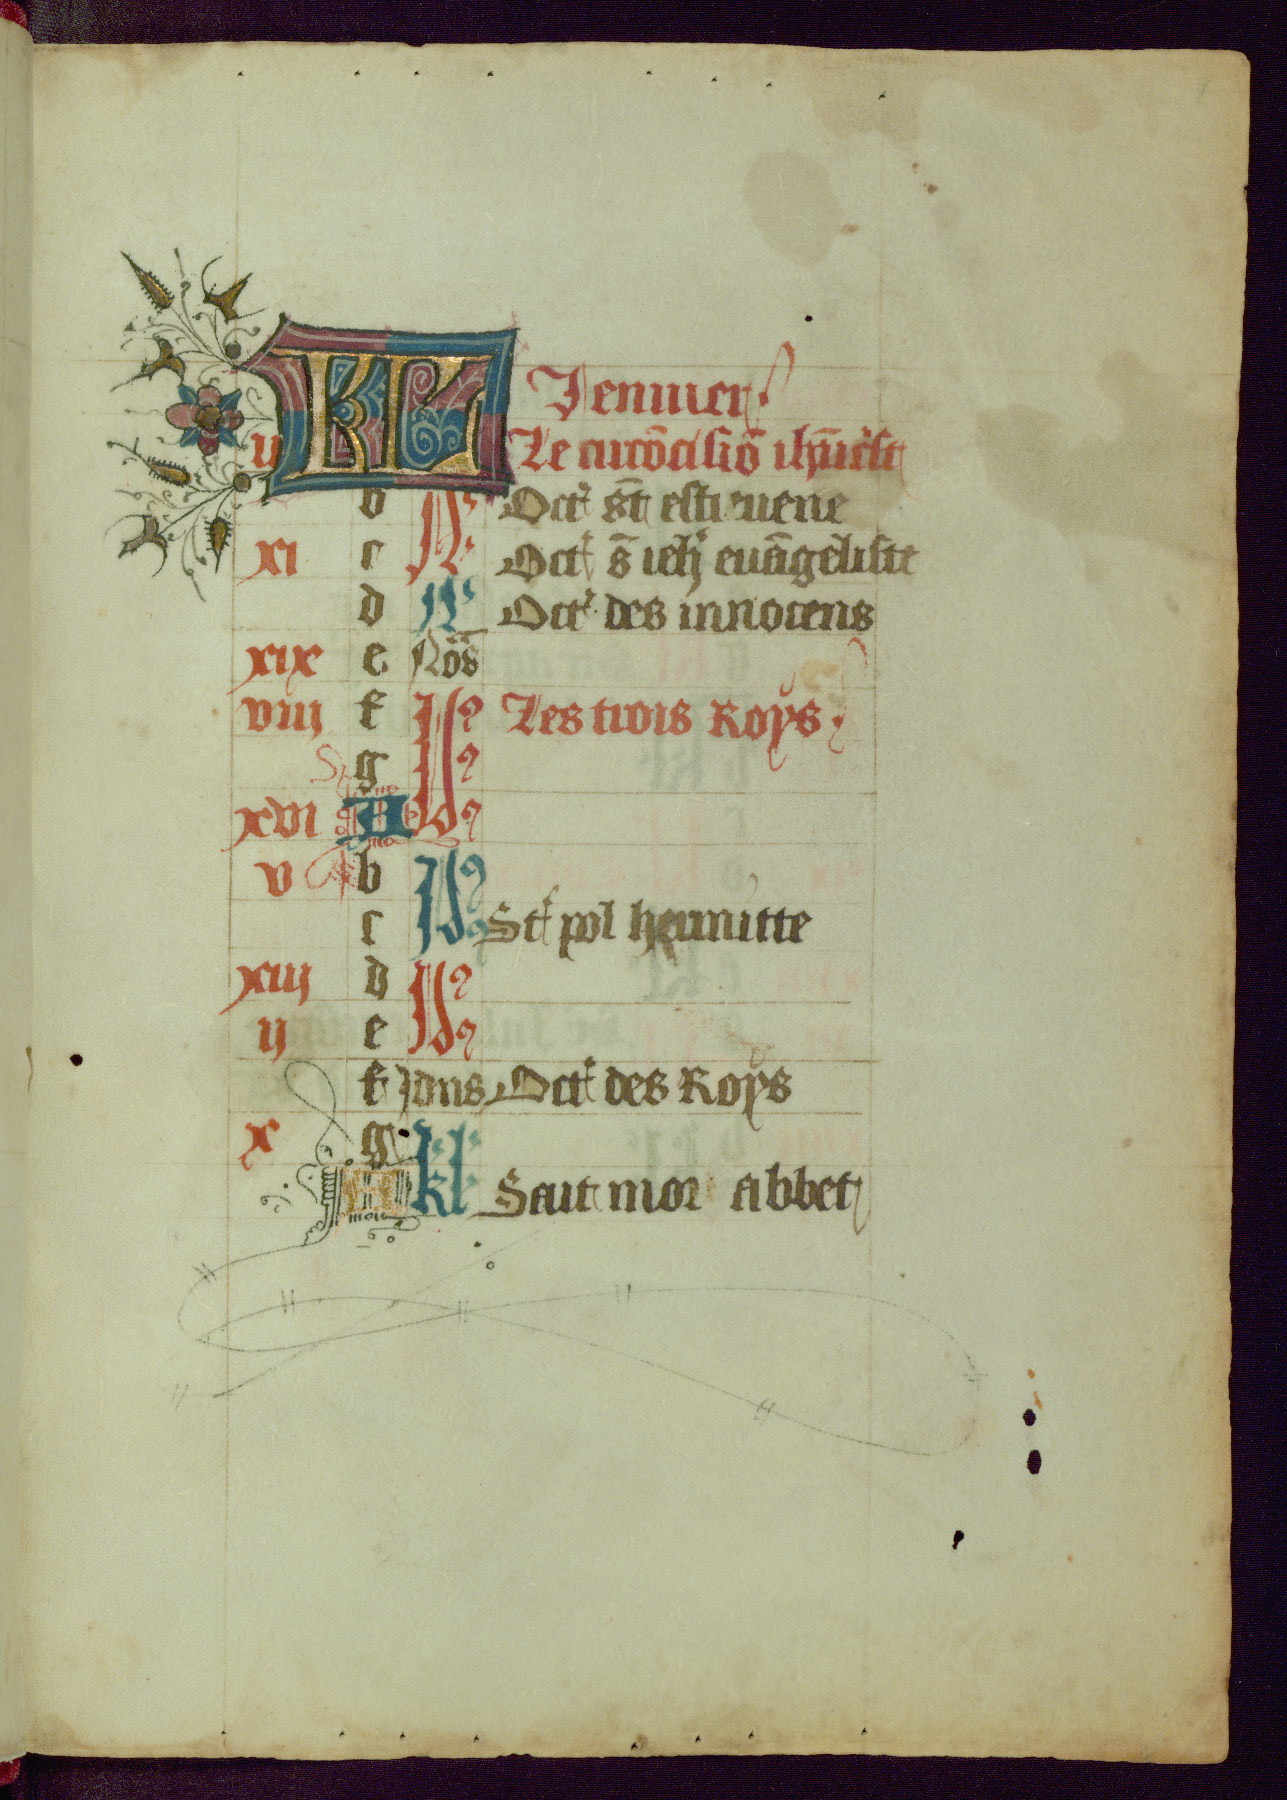 KL Jenuier
iij Le circōcisiō ihūcst
b N Oct' sīt estieuene
xi c N Oct' s̄ ieh' euāgeliste
d N Oct' des innocens
xix e Nōs
viij f Jd Les trois Roys.
g Jd
xvi A Jd
v b Jd
c Jd St' pol hermitte
xiij d Jd
ij e Jd
f Jdus Oct' des Roys
x g kl
A kl Saīt mor abbet